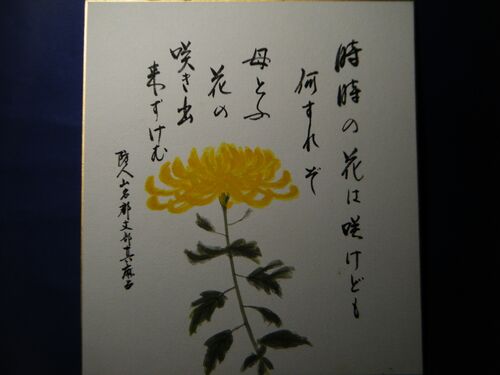 時時の花は咲けども
何すれぞ
母とふ
花の
咲き出
来ずけむ
防人山名郡丈部真麻呂